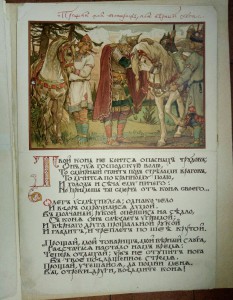 Прощай мой товарищъ, мой вѣрный слуга...
Твой конь не боится опасныхъ трудовъ;
Онъ, чуя господскую волю,
То смирный стоитъ подъ стрѣлами враговъ,
То мчится по бранному полю,
И холодъ и сѣча ему ничего.
Но примешь ты смерть отъ коня своего...
Олегъ усмѣхнулся; однако чело
И взоръ омрачилися думой.
Въ молчаньи, рукой опершись на сѣдло,
Съ коня онъ слѣзаетъ угрюмый;
И вѣрнаго друга прощальной рукой
И гладитъ, и треплетъ по шеѣ крутой.
Прощай, мой товарищъ, мой вѣрный слуга,
Разстаться настало намъ время:
Теперь отдыхай! ужъ не ступитъ нога
Въ твое позлащенное стремя.
Прощай, утѣшайся, да помни меня,
Вы, отроки, други, возьмите коня!